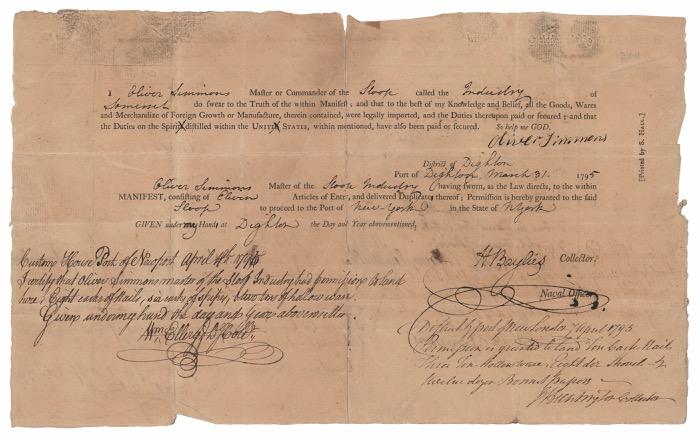 I Oliver Simmons Master or Commander of the Sloop called the Industry of
Somerset do swear to the Truth of the within Manifest; and that to the best of my Knowledge and Belief, all the Goods, Wares
and Merchandize of Foreign Growth or Manufacture, therein contained, were legally imported, and the Duties thereupon paid or secured; and that
the Duties on the Spirits distilled within the UNITED STATES, within mentioned, have also been paid or secured. So help me GOD.
Oliver Simmons
[Printed by S. HALL.]
District of Dighton
Port of Dighton, March 31. 1795
Oliver Simmons Master of the Sloop Industry having sworn, as the Law directs, to the within
MANIFEST, consisting of Eleven Articles of Entry, and delivered Duplicates thereof; Permission is hereby granted to the said
Sloop to proceed to the Port of New-York in the State of N York
GIVEN under my Hand at Dighton the Day and Year abovementioned.
H Baylies Collector.
Naval Officer
Custom House Port of Newport April 4th 1795
I certify that Oliver Simmons master of the Sloop Industry had permission to land
here Eight casks of Nails, six of
Given under my hand the day and year above
Wm Ellery Collr
District & port of New London 7 April 1795
Permission is granted to land Ten Cask Nails
Three Ware Eight doz Shovels &
twelve dozen papers
J Huntington Collector